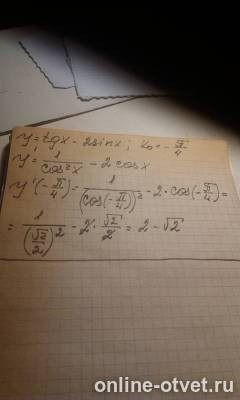 y = tgx - 2sinx; x₀ = -π/4
y' = 1/cos²x - 2cosx
y'(-π/4) = 1/(cos(-π/4))² - 2·cos(-π/4) =
= 1/(√2/2)² - 2·√2/2 = 2 - √2
online-otvet.ru